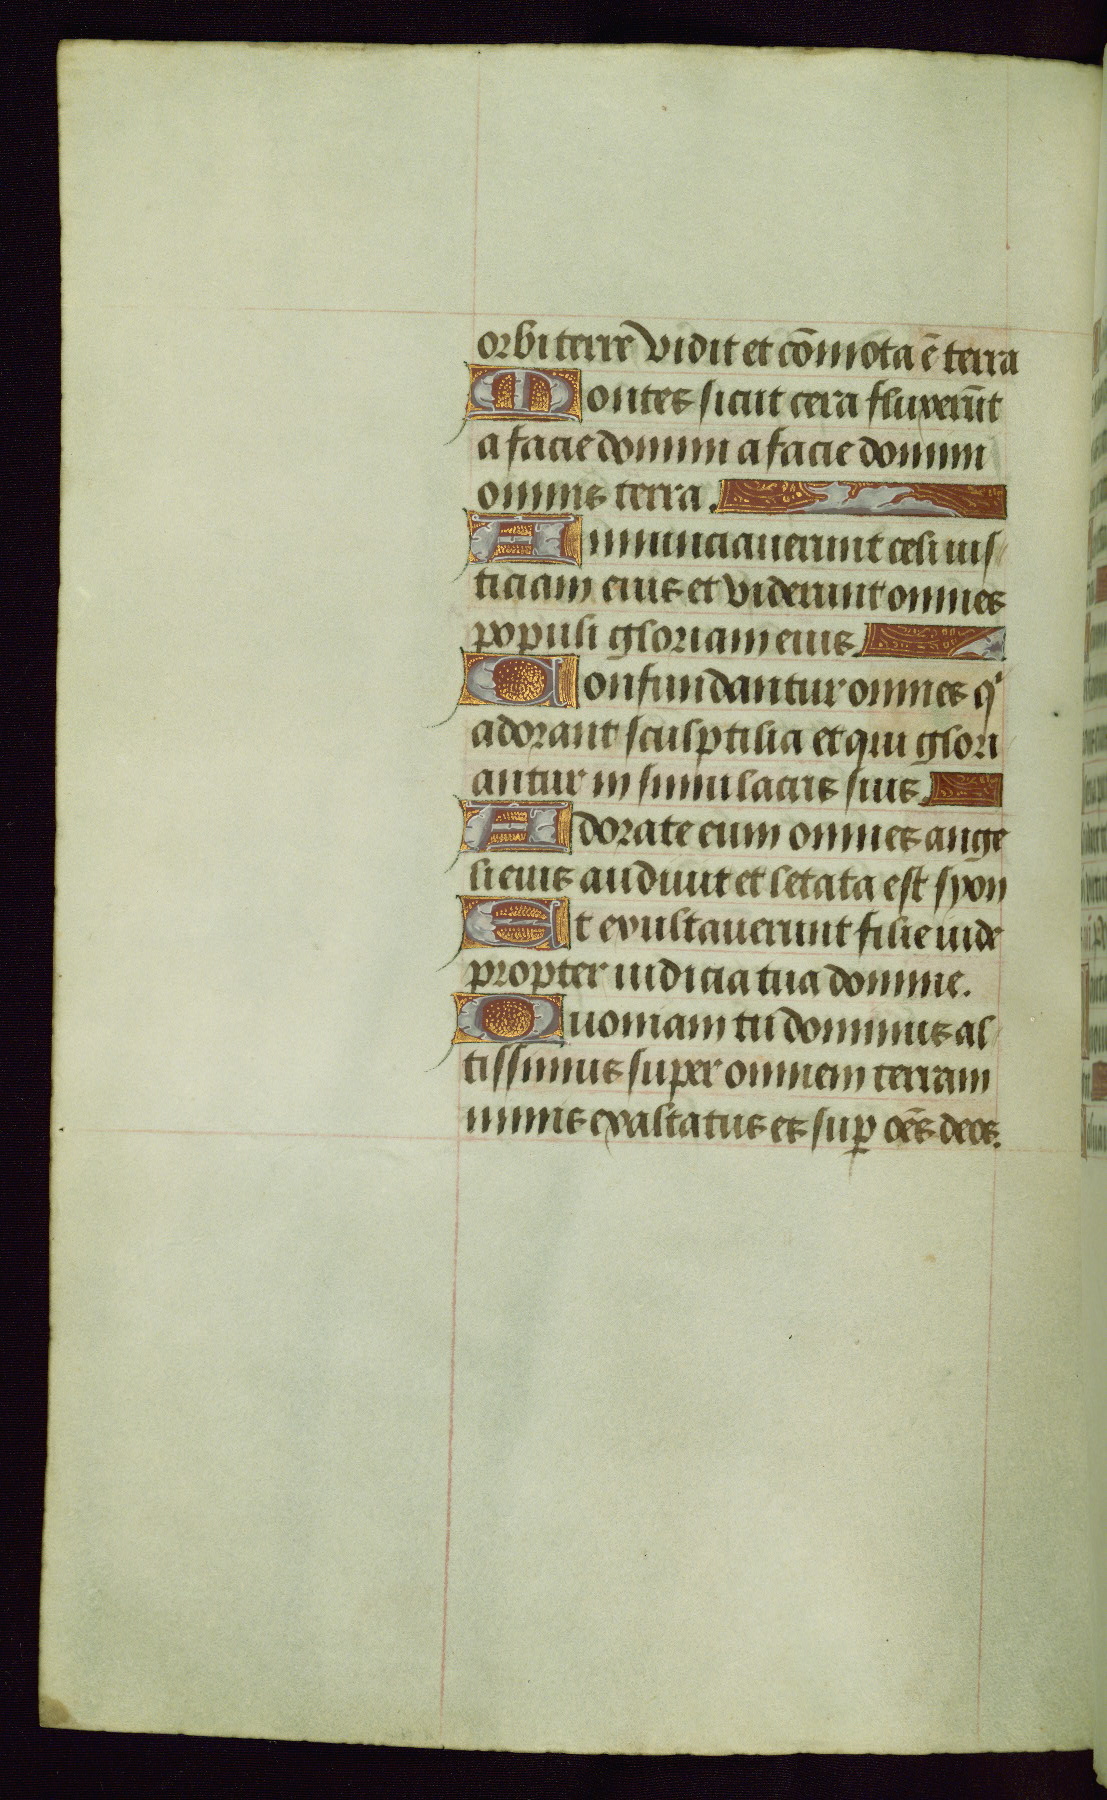 orbi terre vidit et cõmota ẽ terra
Montes sicut cera fluxerũt
a facie domini a facie domini
omnis terra.
Annunciauerunt celi ius
ticiam eius et viderunt omnes
populi gloriam eius.
Confundantur omnes qͥ
adorant sculptilia et qui glori
antur in simulacris suis.
Adorate eum omnes ange
li eius audiuit et letata est syon
Et exultauerunt filie iude
propter iudicia tua domine.
Quoniam tu dominus al
tissimus super omnem terram
nimis exaltatus es suꝑ oẽs deos.